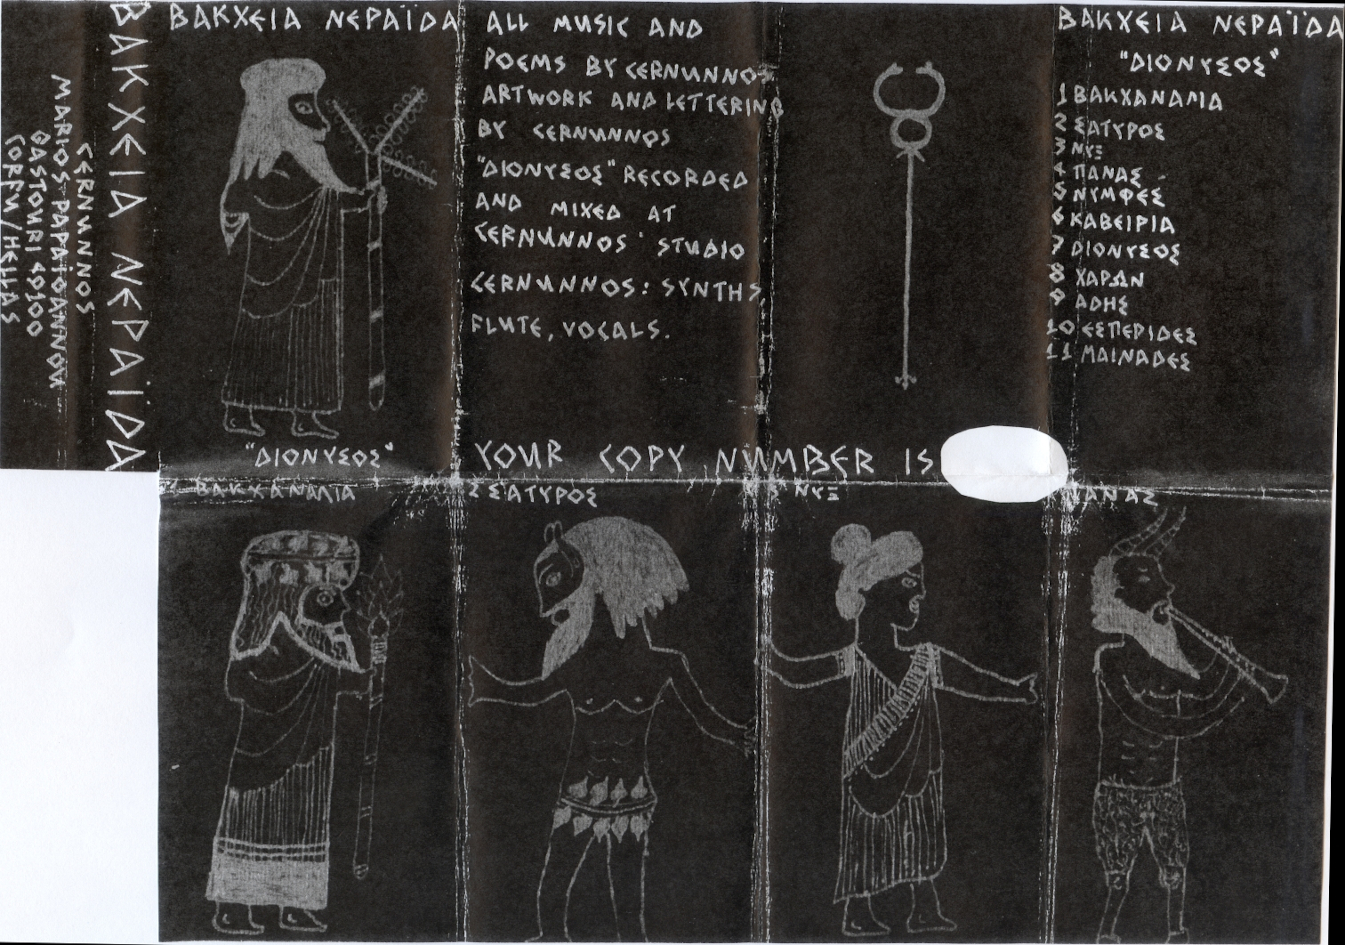 ΒΑΚΧΕΙΑ ΝΕΡΑΪΔΑ
CERNUNNOS
MARIOS PAPAIOANNOU
GASTOURI 49100
CORFU/HELLAS
ΒΑΚΧΕΙΑ ΝΕΡΑΪΔΑ
"ΔΙΟΝΥΣΟΣ"
ALL MUSIC AND
POEMS BY CERNUNNOS
ARTWORK AND LETTERING
BY CERNUNNOS
"ΔΙΟΝΥΣΟΣ" RECORDED
AND MIXED AT
CERNUNNOS' STUDIO
CERNUNNOS: SYNTHS,
FLUTE, VOCALS.
YOUR COPY NUMBER IS
ΒΑΚΧΕΙΑ ΝΕΡΑΪΔΑ
"ΔΙΟΝΥΣΟΣ"
1 ΒΑΚΧΑΝΑΛΙΑ
2 ΣΑΤΥΡΟΣ
3 ΝΥΞ
4 ΠΑΝΑΣ
5 ΝΥΜΦΕΣ
6 ΚΑΒΕΙΡΙΑ
7 ΔΙΟΝΥΣΟΣ
8 ΧΑΡΩΝ
9 ΑΔΗΣ
10 ΕΣΠΕΡΙΔΕΣ
11 ΜΑΙΝΑΔΕΣ
1 ΒΑΚΧΑΝΑΛΙΑ
2 ΣΑΤΥΡΟΣ
ΝΥΞ
ΠΑΝΑΣ